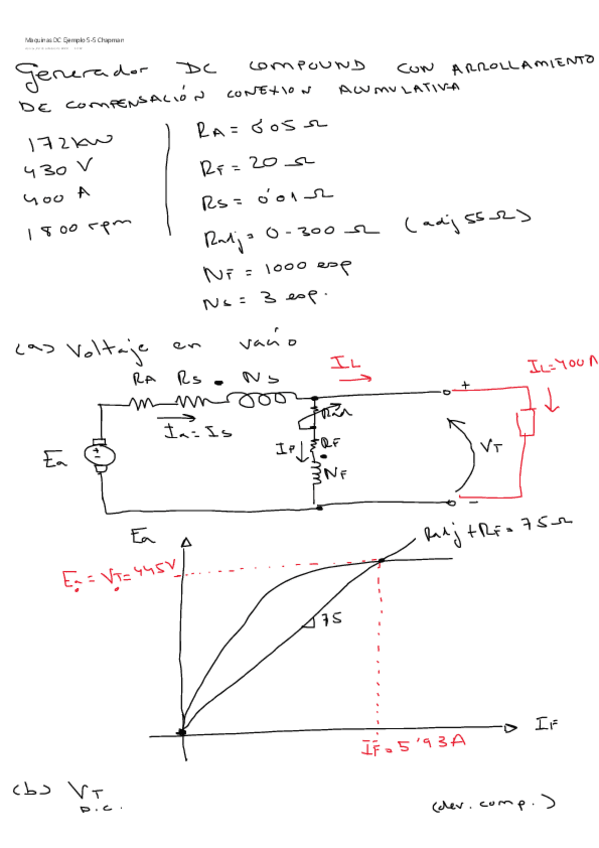 Maquinas DC Ejemplo 5-5 Chapman
Generador DC COMPOUND CON ARROLLAMIENTO
DE COMPENSACIÓN CONEXION ACUMULATIVA
172 KW
430 V
400 A
1800 rpm
RA = 0'05 Ω
RF = 20 Ω
RS = 0'01 Ω
Radj = 0-300 Ω (adj 55Ω)
NF = 1000 esp
NS = 3 esp.
(a) Voltaje en vacío
RA RS NS
IL
IL=400A
+
Ia = Is
Radj
IF
RF
NF
Ea
+
-
VT
-
Ea
Radj + RF = 75Ω
Ea = VT = 445V
75
IF
IF = 5'93 A
(b) VT
P.C.
(dev. comp.)